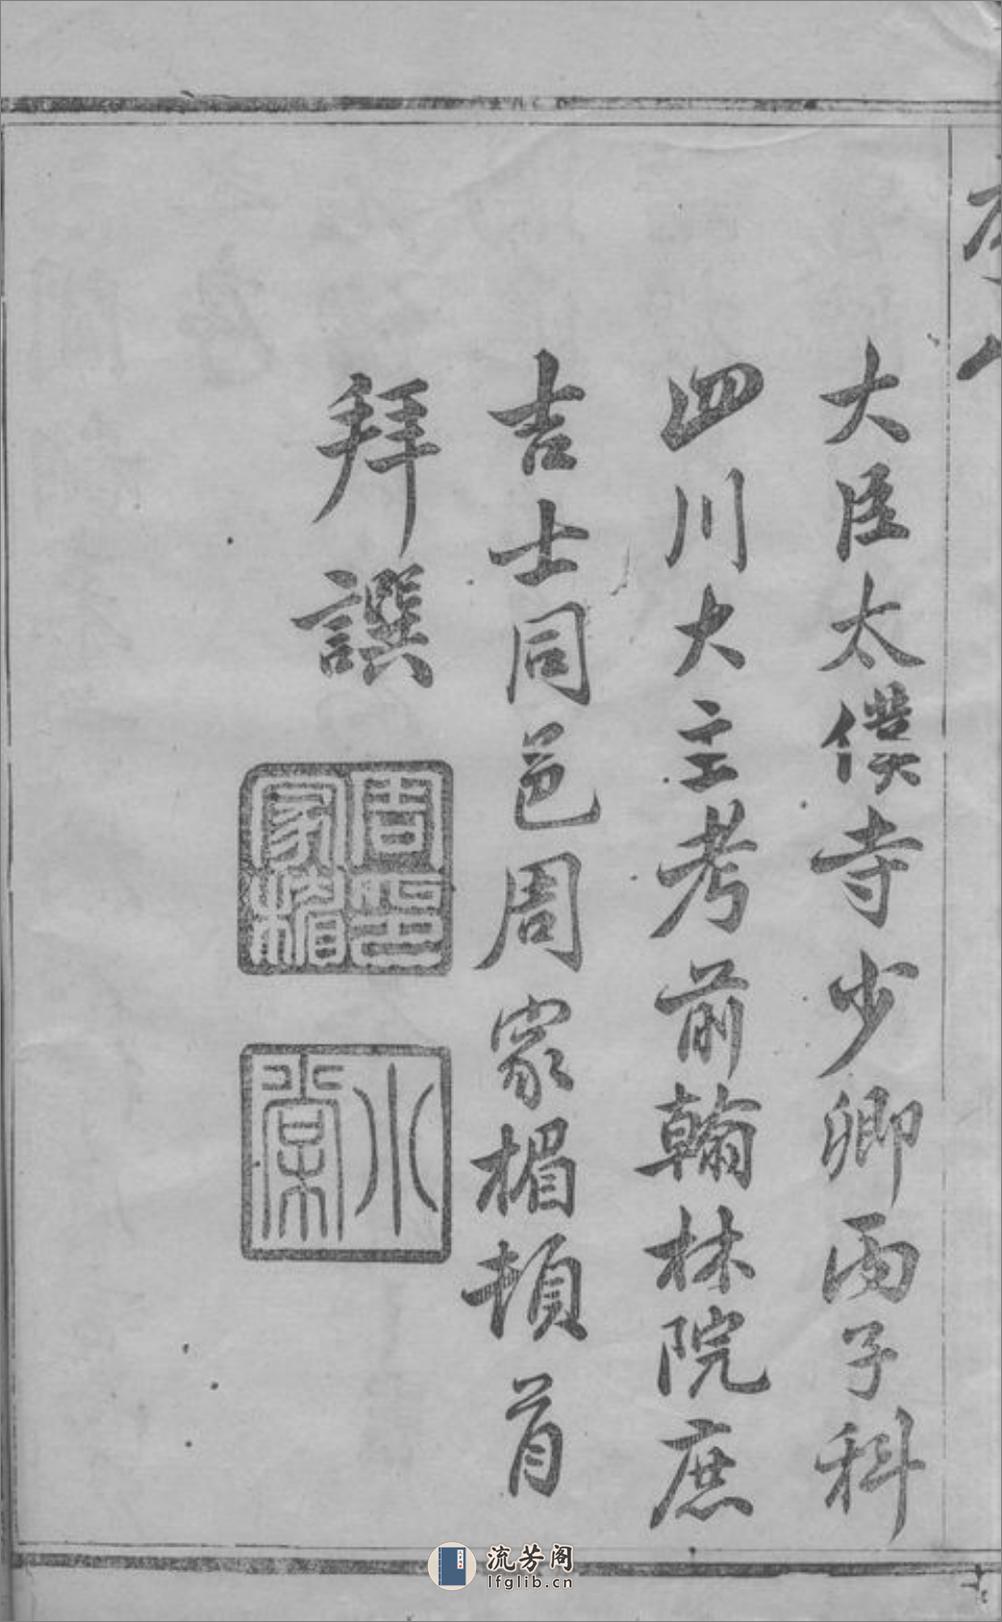 大臣太僕寺少卿丙子科
四川大主考前翰林院庶
吉士同邑周家楣頓首
拜譔
周印家楣
小棠
流芳阁
lfglib.cn